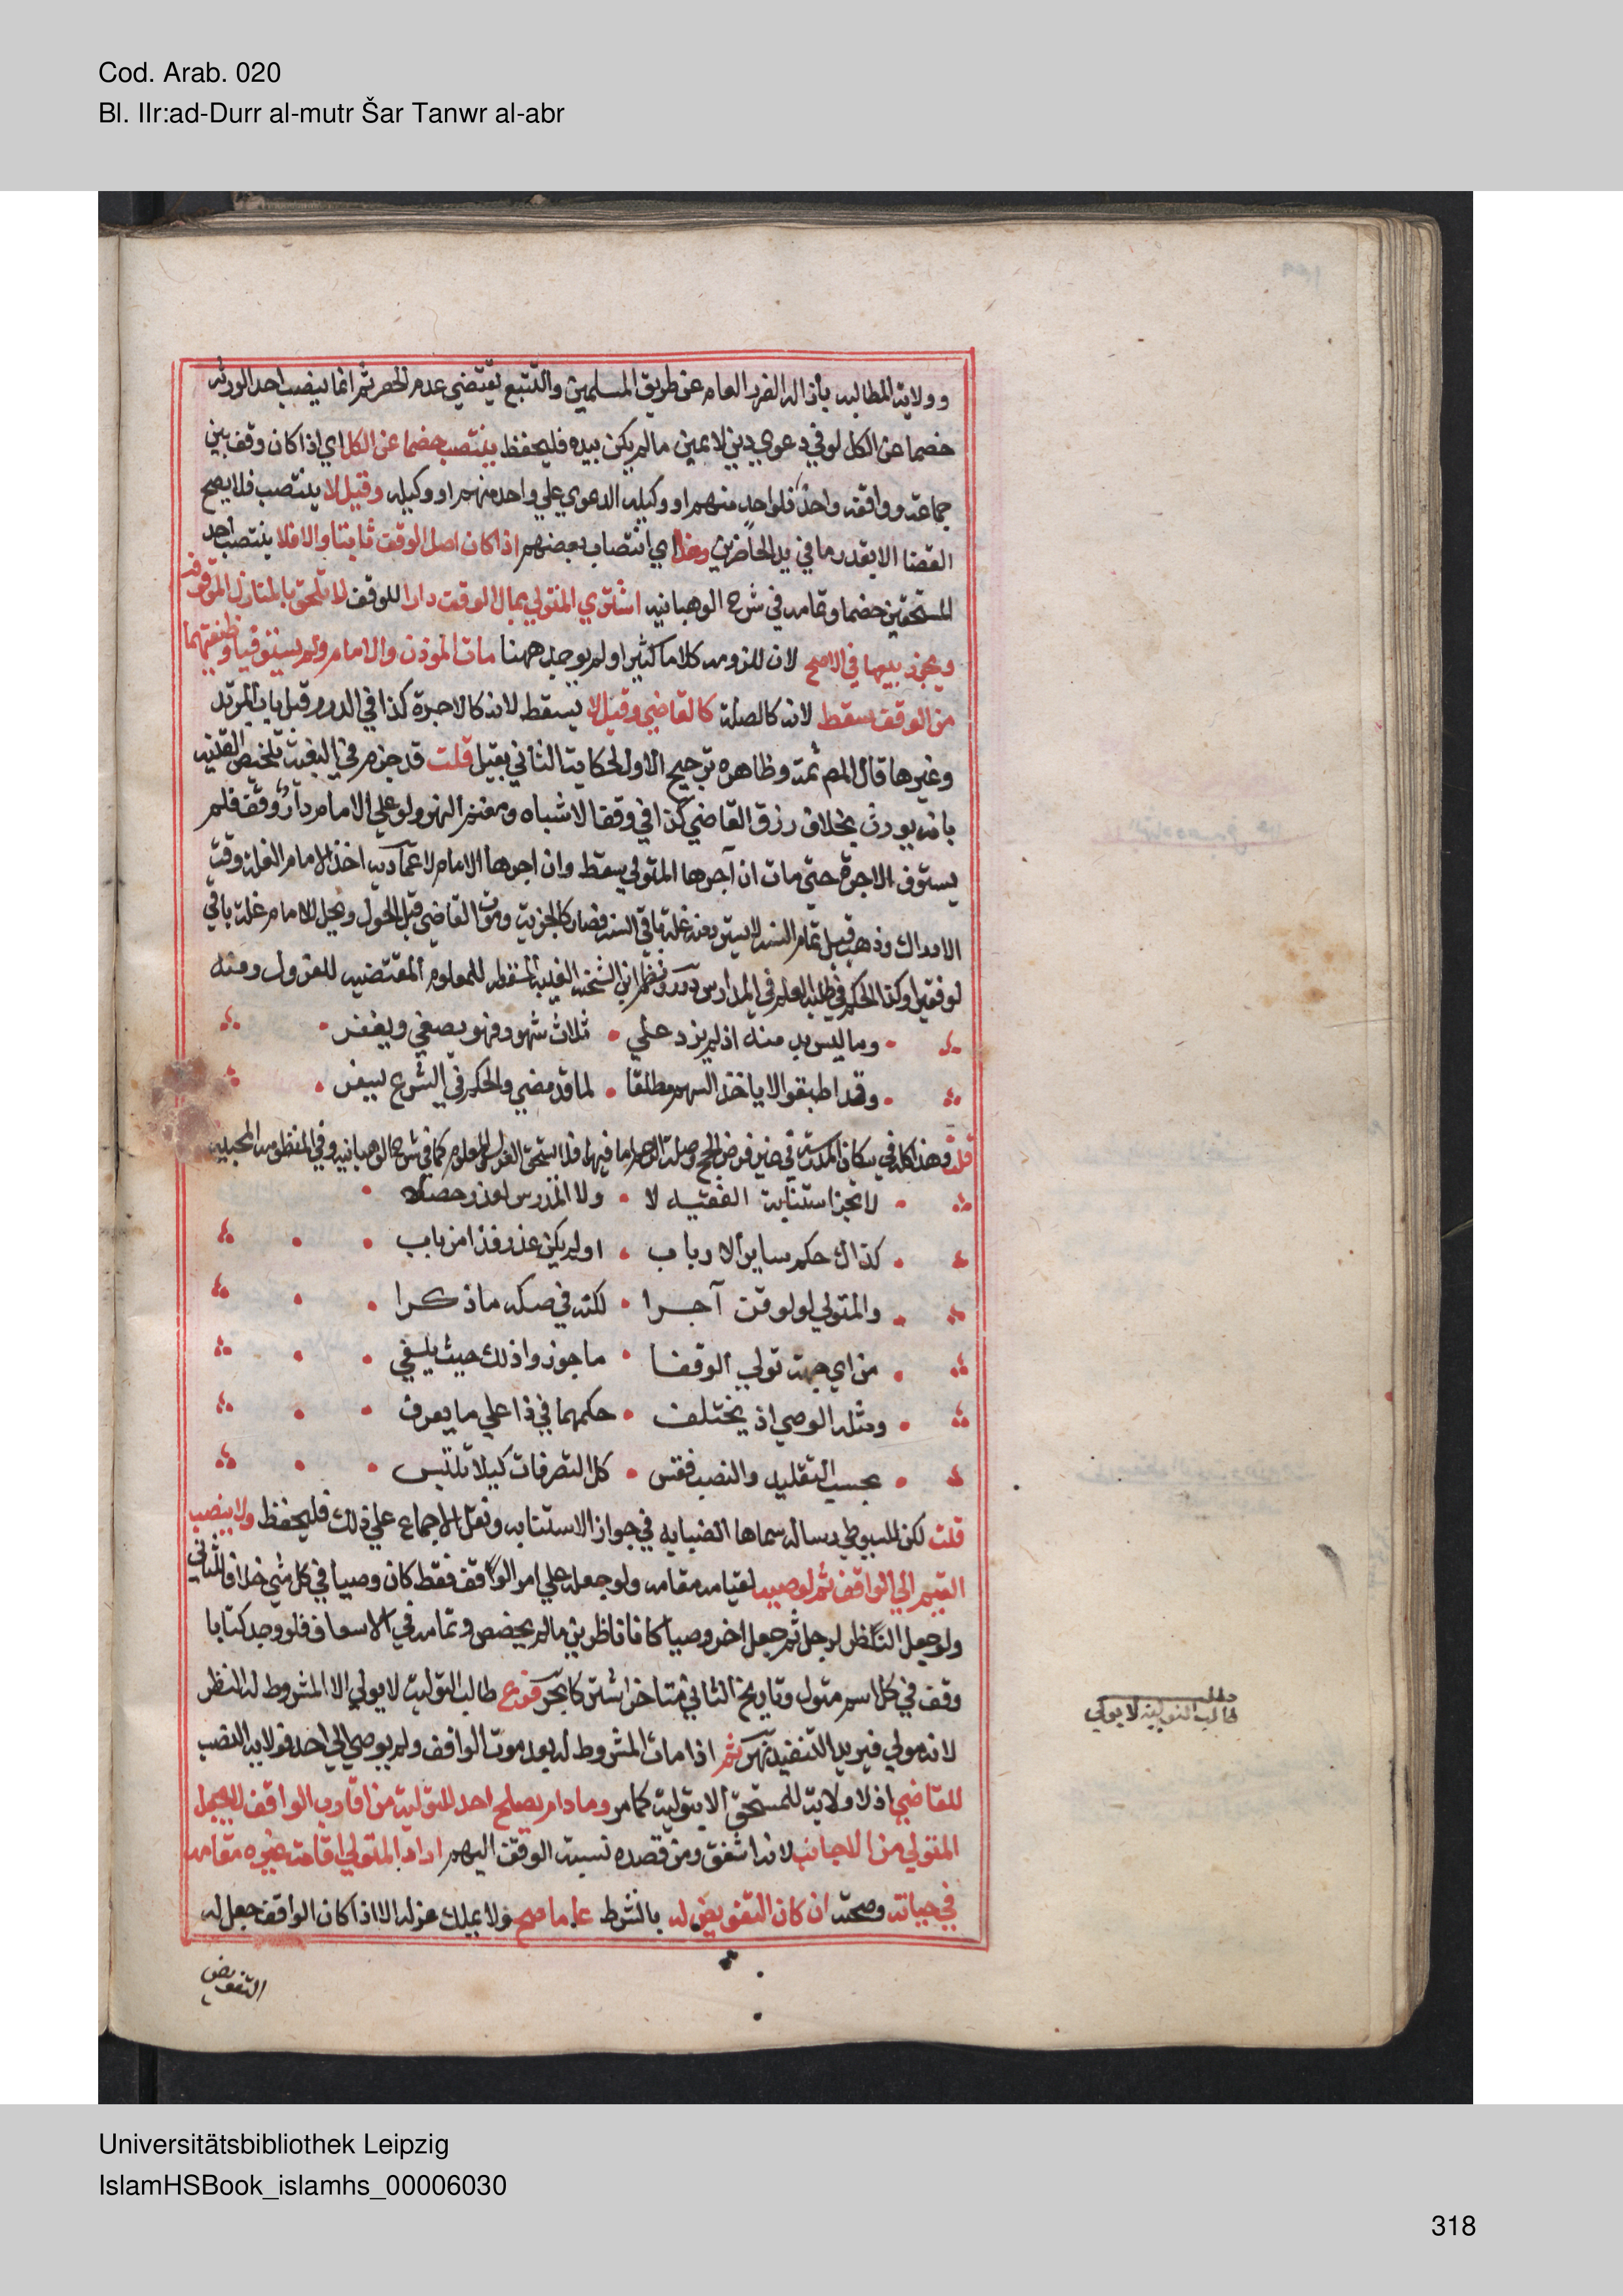 Cod. Arab. 020
Bl. IIr:ad-Durr al-mutr Šar Tanwr al-abr
وولاية المطالبه بأزاله الضرر العام عن طريق المسلمين والتتبع يقتضي عدم الحصر ثم انما ينصب احد الورثه
خصما عن الكل لو في دعوي دين لا عين مالم يكن بيده فليحفظ ينتصب خصما عن الكل اي اذا كان وقف بين
جماعة وواقفه واحد فلواحد منهم او وكيله الدعوي علي واحد منهم او وكيله وقيل لا ينتصب فلا يصح
القضا الا بقدر ما في يد الحاضرين وهذا اي انتصاب بعضهم اذا كان اصل الوقف ثابتا والا فلا ينتصب احد
المستحقين خصما وتمامه في شرح الوهبانيه اشتري المتولي بمال الوقف دارا للوقف لا تلحق بالمنازل الموقوفه
ويجوز بيعها في الاصح لان للزومه كلاما كثيرا ولم يوجد ههنا مات الموذن والامام ولم يستوفيا وظيفتهما
من الوقف سقط لانه كالصلة كالقاضي وقيل لا يسقط لانه كالاجرة كذا في الدرر قبل باب المرتد
وغيرها قال المص ثمة وظاهره ترجيح الاول لحكاية الثاني بقيل قلت قد جزم في البغية تلخيص القنيه
بانه يورث بخلاف رزق القاضي كذا في وقف الاشباه ومغنم النهر ولو علي الامام دار وقف فلم
يستوف الاجرة حتي مات ان آجرها المتولي سقط وان اجرها الامام لا عماديه اخذ الامام الغلة وقت
الادراك وذهب قبل تمام السنه لا يسترد منه غلة باقي السنه فصار كالجزية وموت القاضي قبل الحول ويحل للامام غلة باقي
لو فقيرا وكذا الحكم في طلبه العلم في المدارس درر ونظم ابن الشحنه الغيبه المسقطه للمعلوم المقتضيه للعزل ومنه
وما ليس بد منه اذ لم يزد علي • ثلاث شهور فهو يعفي ويغفر
وقد اطبقوا لا ياخذ السهم مطلقا • لما قد مضي والحكم في الشرع يسفر
قلت وهذا كله في سكان المدرسة في غير فرض الحج وصلة الرحم اما فيهما فلا يستحق العزل والمعلوم كما في شرح الوهبانيه وفي المنظومه المحبيه
لا تجز استنابة الفقيه لا • ولا المدرس لعذر حصلا
كذاك حكم ساير الارباب • او لم يكن عذر فذا من باب
والمتولي لو لوقف آجرا • لكنه في صكه ما ذكرا
من اي جهة تولي الوقفا • ما جوزوا ذلك حيث يلفي
ومثله الوصي اذ يختلف • حكمهما في ذا علي ما يعرف
بحسب التقليد والنصب فقس • كل التصرفات كيلا تلتبس
قلت لكن للسيوطي رساله سماها الضبابه في جواز الاستنابه ونقل الاجماع علي ذلك فليحفظ ولاية نصب
القيم الي الواقف ثم لوصيه لقيامه مقامه ولو جعله علي امر الوقف فقط كان وصيا في كل شي خلافا للثاني
ولو جعل النظر لرجل ثم جعل اخر وصيا كانا ناظرين مالم يخصص وتمامه في الاسعاف فلو وجد كتابا
وقف في كل اسم متول وتاريخ الثاني متاخر اشتركا بحر فروع طالب التولية لا يولي الا المشروط له النظر
لانه مولي فيريد التنفيذ نهر ثم اذا مات المشروط له بعد موت الواقف ولم يوص الي احد فولاية النصب
للقاضي اذ لا ولاية للمستحق الا بتولية كما مر وما دام يصلح احد للتولية من اقارب الواقف لا يجعل
المتولي من الاجانب لانه اشفق ومن قصده نسبة الوقف اليهم اراد المتولي اقامة غيره مقامه
في حياته وصحته ان كان التفويض له بالشرط عاما صح ولا يملك عزله الا اذا كان الواقف جعل له
التفويض
مطلب
طالب التولية لا يولي
Universitätsbibliothek Leipzig
IslamHSBook_islamhs_00006030
318